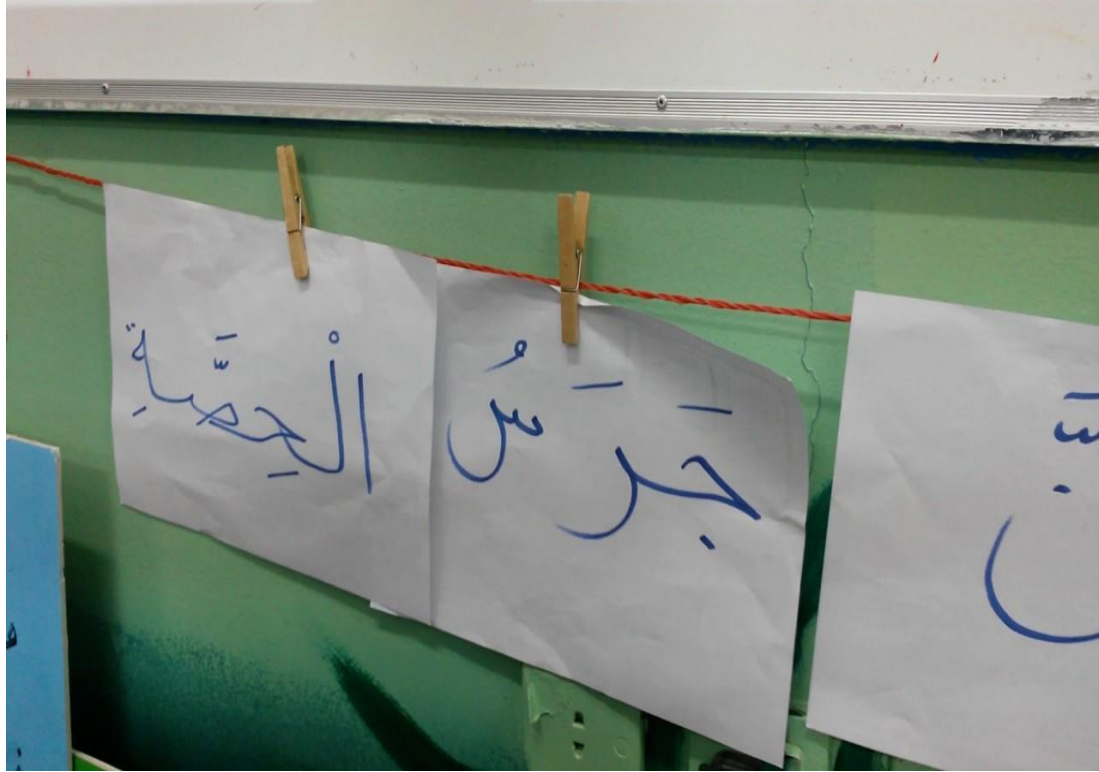 جَرَسُ الْحِصَّةِ